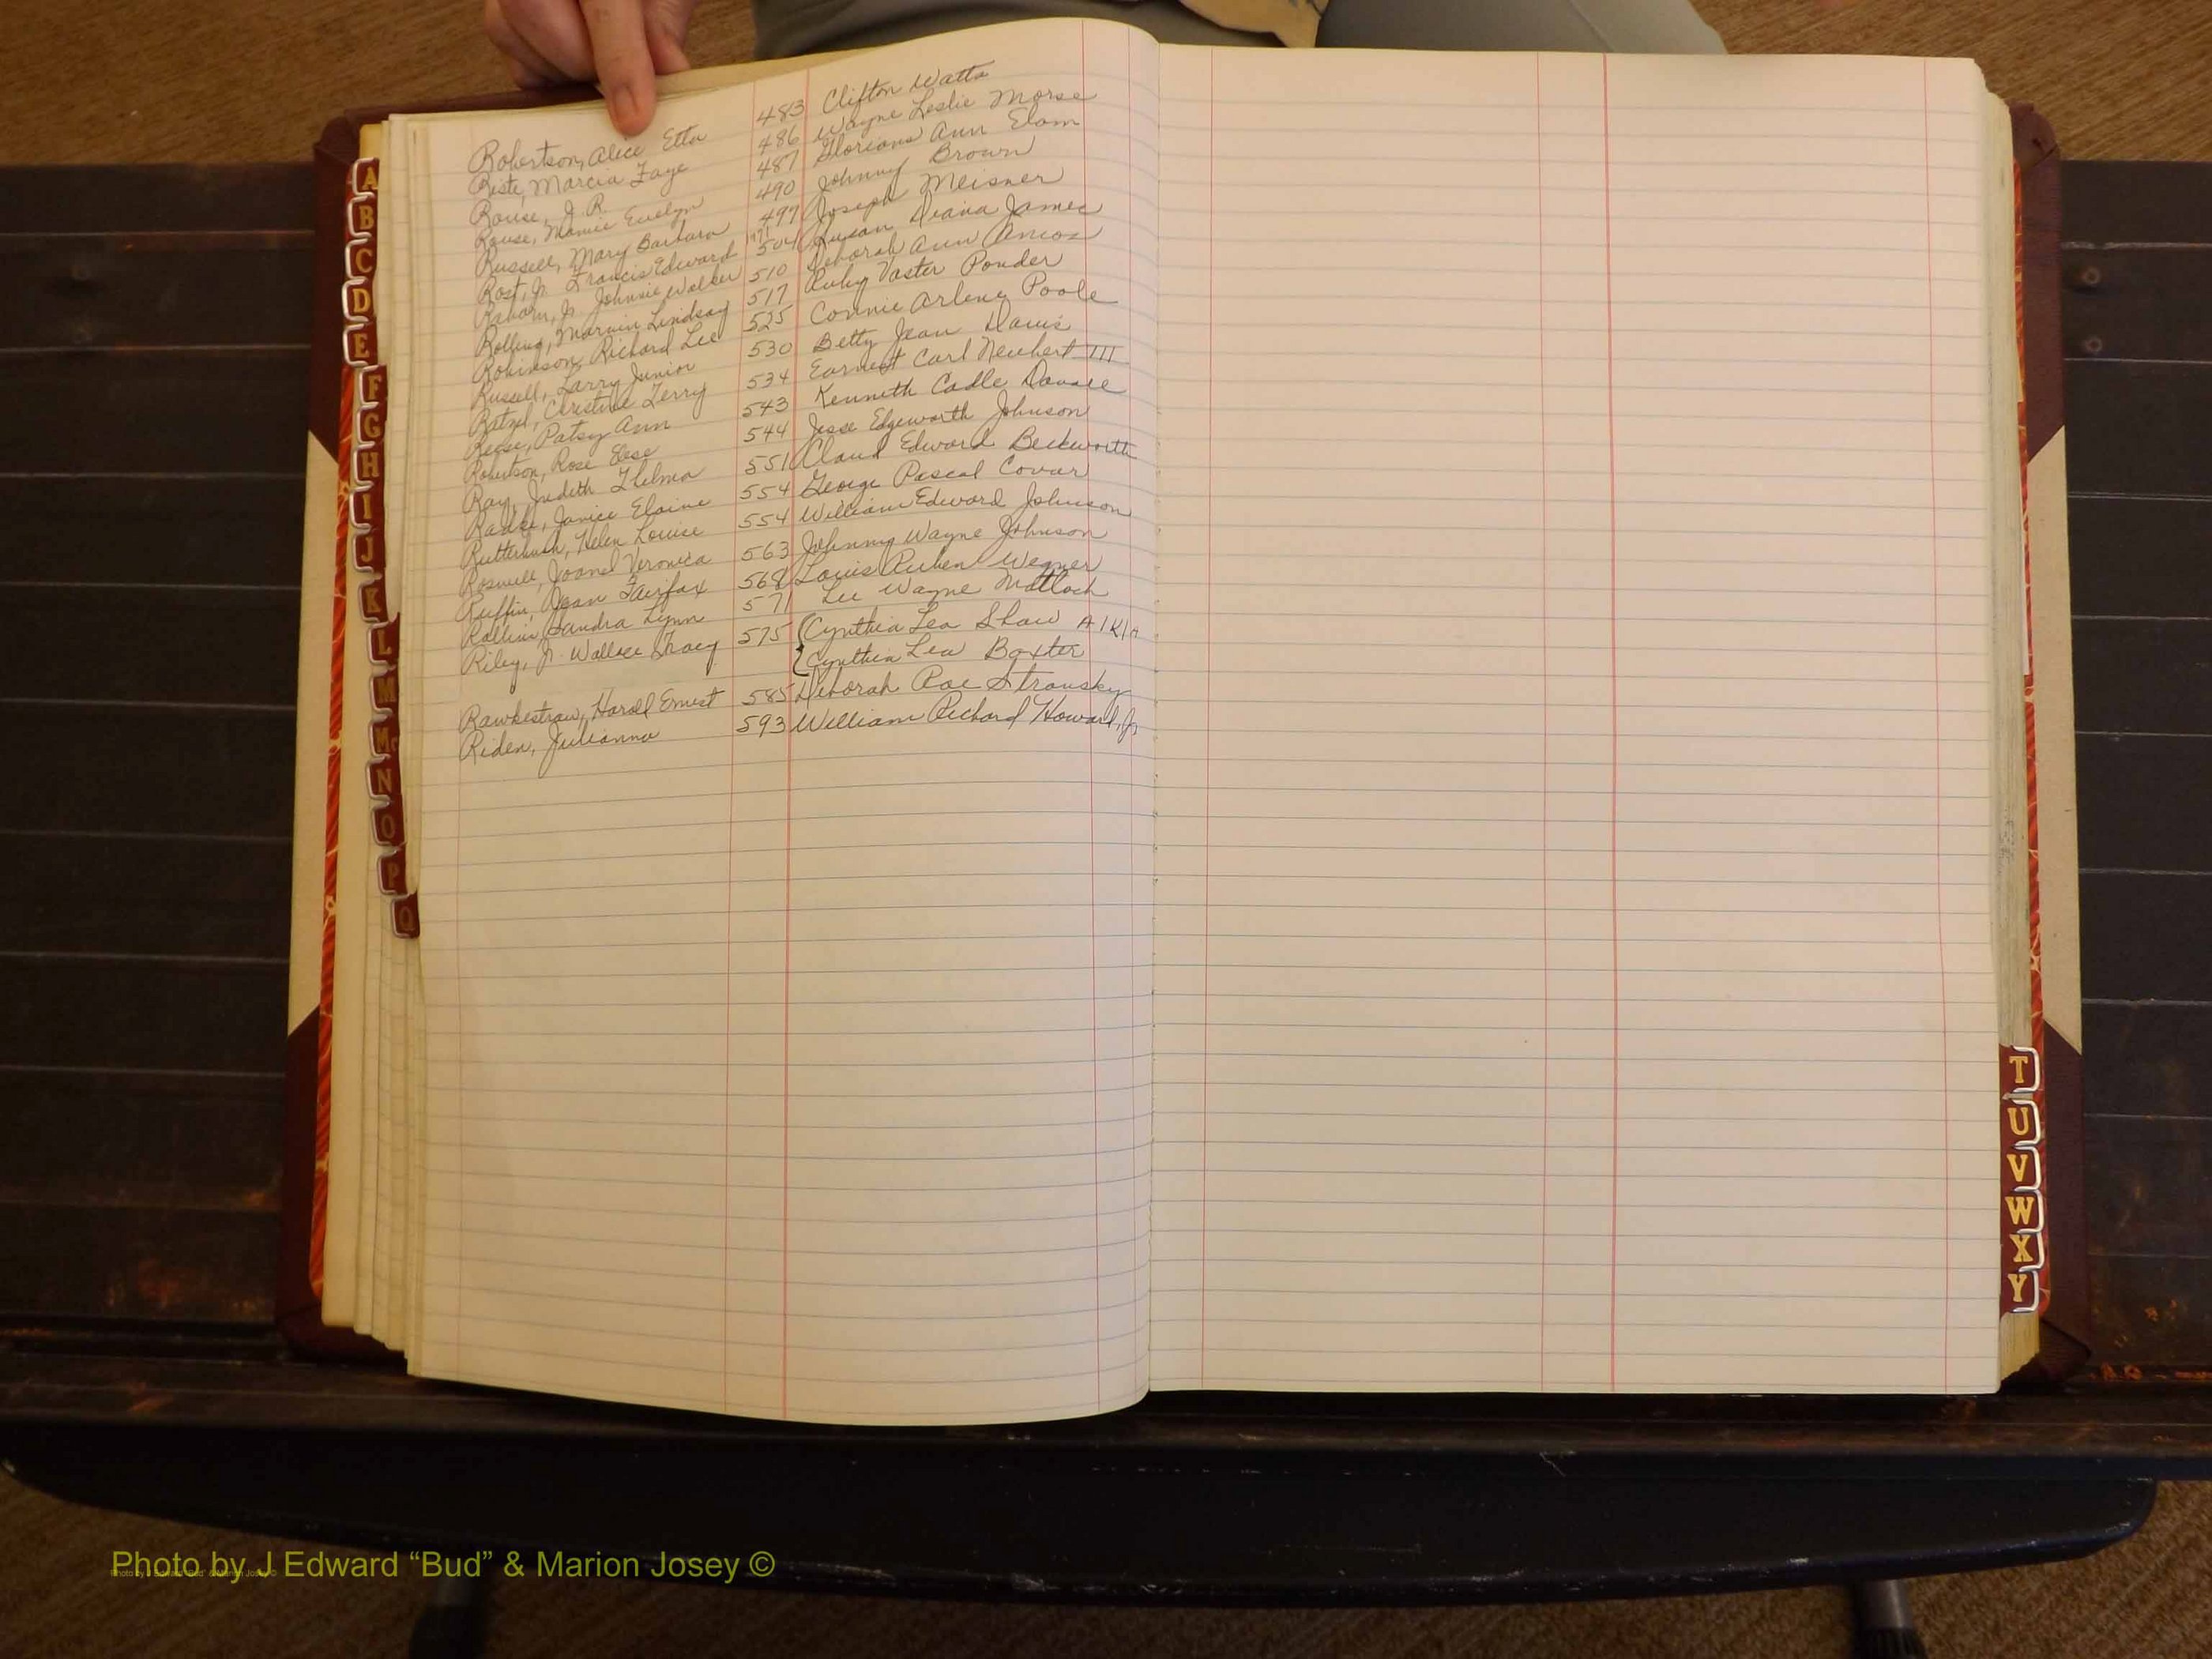 Robertson, Alice Etta 483 Clifton Watts
Riste, Marcia Faye 486 Wayne Leslie Morse
Rouse, J. R. 487 Gloriana Ann Elam
Rouse, Mamie Evelyn 490 Johnny Brown
Russell, Mary Barbara 497 Joseph Meisner
Rost, Jr. Francis Edward 504 Susan Diana James
Raborn, Jr. Johnsie Walker 510 Deborah Ann Amos
Rollins, Marvin Lindsay 517 Ruby Vaster Ponder
Robinson, Richard Lee 525 Connie Arlene Poole
Russell, Larry Junior 530 Betty Jean Davis
Ratzel, Christine Terry 534 Earnest Carl Neubert III
Reese, Patsy Ann 543 Kenneth Cadle
Robertson, Rose 544 Jesse Edgeworth Johnson
Ray, Judith Thelma 551 Claud Edward Beckworth
Radke, Janice Elaine 554 George Pascal Covar
Butterbush, Helen Louise 554 William Edward Johnson
Roswell, Veronica 563 Johnny Wayne Johnson
Ruffin, Jean Fairfax 568 Louis Ruben Wegner
Rollins, Sandra Lynn 571 Lee Wayne Matlock
Riley, Jr. Wallace Tracy 575 Cynthia Lea Shaw A/K/A
Cynthia Lea Baxter
Rawkestraw, Harold Ernest 585 Deborah Rae Stransky
Riden, Julianna 593 William Richard Howard, Jr.
A
B
C
D
E
F
G
H
I
J
K
L
M
Mc
N
O
P
Q
T
U
V
W
X
Y
Photo by J Edward “Bud” & Marion Josey ©
Photo by J Edward “Bud” & Marion Josey ©